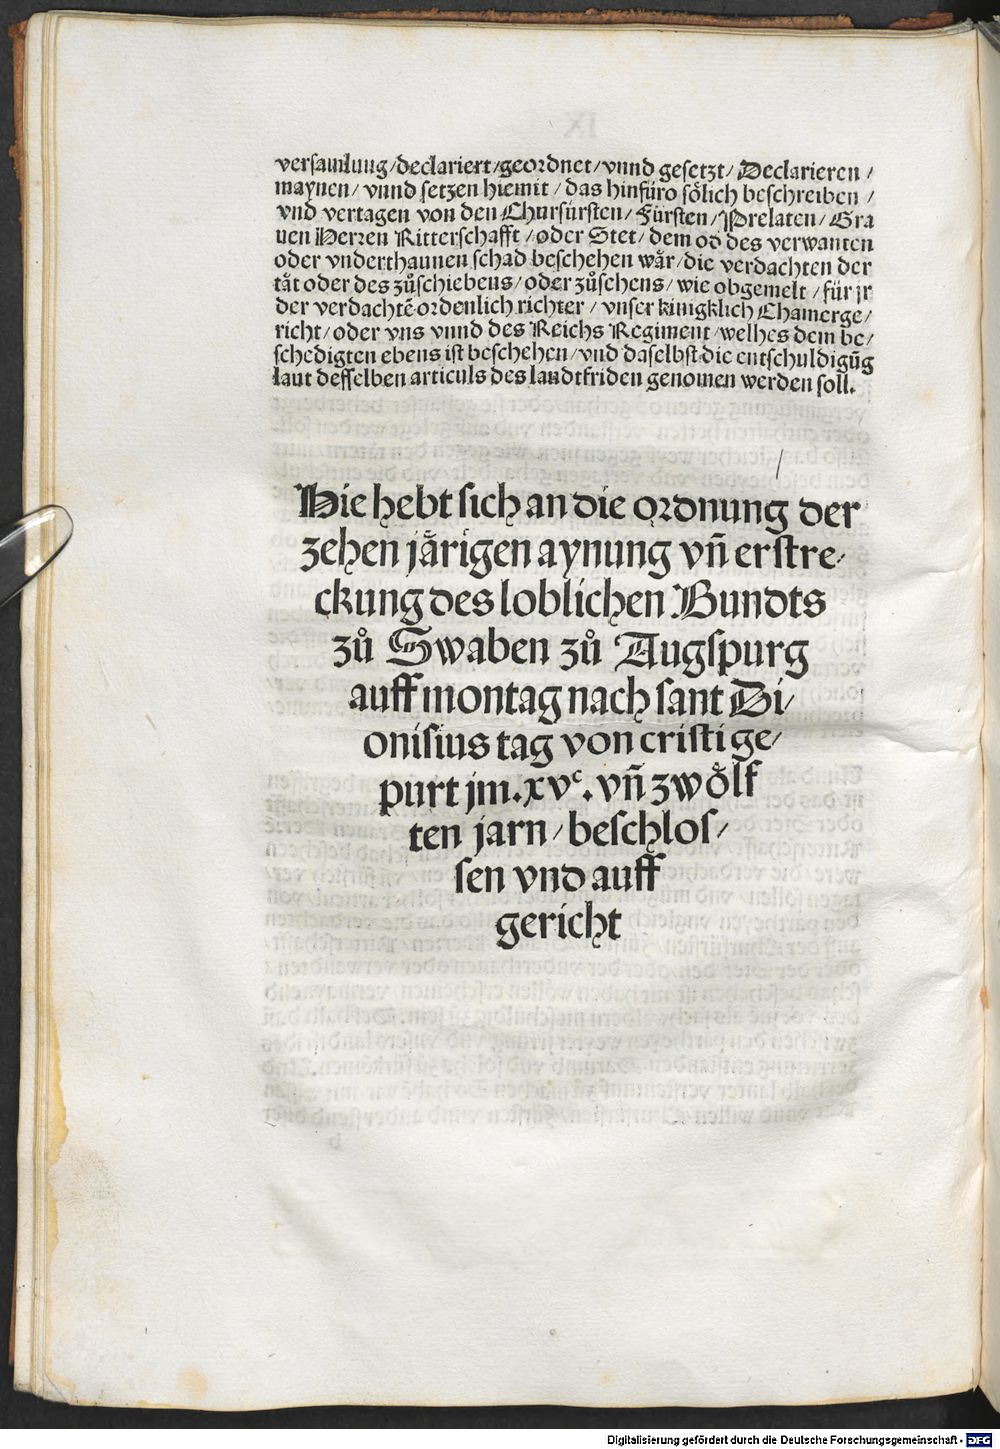 versamlung/declariert/geordnet/vnnd gesetzt/Declarieren/
maynen/vnnd setzen hiemit/das hinfüro sölich beschreiben/
vnd vertagen von den Churfürsten/Fürsten/Prelaten/Gra
uen Herren Ritterschafft/oder Stet/dem od des verwanten
oder vnderthaunen schad beschehen wär/die verdachten der
tät oder des zůschiebens/oder zůsehens/wie obgemelt/für jr
der verdachtē ordenlich richter/vnser kinigklich Chamerge/
richt/oder vns vnnd des Reichs Regiment/welhes dem be/
schedigten ebens ist beschehen/vnd daselbst die entschuldigūg
laut desselben articuls des landtfriden genomen werden soll.
Hie hebt sich an die ordnung der
zehen järigen aynung vn̄ erstre/
ckung des loblichen Bundts
zů Swaben zů Augspurg
auff montag nach sant Di/
onisius tag von cristi ge/
purt jm.xvᶜ.vn̄ zwölf
ten jarn/beschlos/
sen vnd auff
gericht
Digitalisierung gefördert durch die Deutsche Forschungsgemeinschaft - DFG